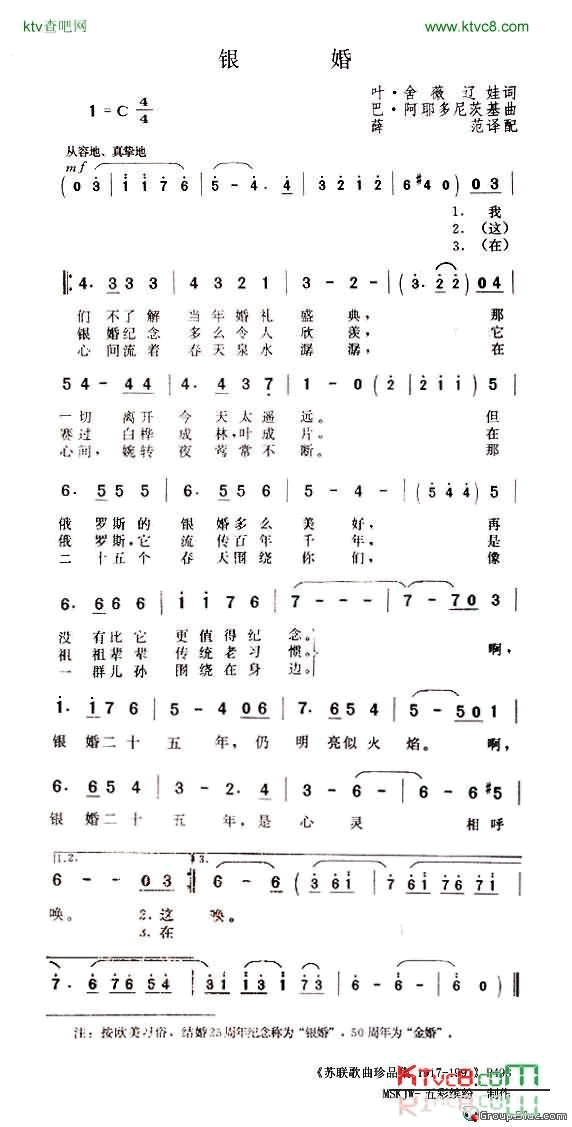 ktv查吧网
www.ktvc8.com
银 婚
1 = C 4/4
叶·舍薇辽娃词
巴·阿耶多尼茨基曲
薛 范译配
从容地、真挚地
mf
(0 3 | i i 7 6 | 5 - 4. 4 | 3 2 1 2 | 6 #4 0) 0 3 |
1. 我
2. (这)
3. (在)
4. 3 3 3 | 4 3 2 1 | 3 - 2 - | (3. 2 2) 0 4 |
们 不了解 当年婚礼 盛 典, 那
银 婚纪念 多么令人 欣 羡, 它
心 间流着 春天泉水 潺 潺, 在
5 4 - 4 4 | 4. 4 3 7 | 1 - 0 (2 | 2 i i) 5 |
一切 离开 今 天太遥 远。 但
赛过 白桦 成 林,叶成 片。 在
心间, 婉转 夜 莺常不 断。 那
6. 5 5 5 | 6. 5 5 5 | 5 - 4 - | (5 4 4) 5 |
俄 罗斯的 银 婚多么 美 好, 再
俄 罗斯,它 流 传百年 千 年, 是
二 十五个 春 天围绕 你 们, 像
6. 6 6 6 | i i 7 6 | 7 - - - | 7 - 7 0 3 |
没 有比它 更值得纪 念。
祖 祖辈辈 传统老习 惯。 啊,
一 群儿孙 围绕在身 边。
i. i 7 6 | 5 - 4 0 6 | 7. 6 5 4 | 5 - 5 0 1 |
银 婚二十 五 年, 仍 明 亮似火 焰。 啊,
6. 6 5 4 | 3 - 2. 4 | 3 - 6 - | 6 - 6 #5 |
银 婚二十 五 年, 是 心 灵 相呼
1.2. 3.
6 - - 0 3 6 - | 6 - (3 6 i | 7 6 i 7 6 7 i |
唤。 2. 这 唤。
3. 在
7. 6 7 6 5 4 | 3 i i 3 i | 7 3 | 6 - 6 - | 6 0 0 0) |
注: 按欧美习俗, 结婚25周年纪念称为“银婚”, 50周年为“金婚”。
《苏联歌曲珍品集 1917-1991》P403
KTVC8.com
MSKJW- 五彩缤纷 制作
GroupStuc.com